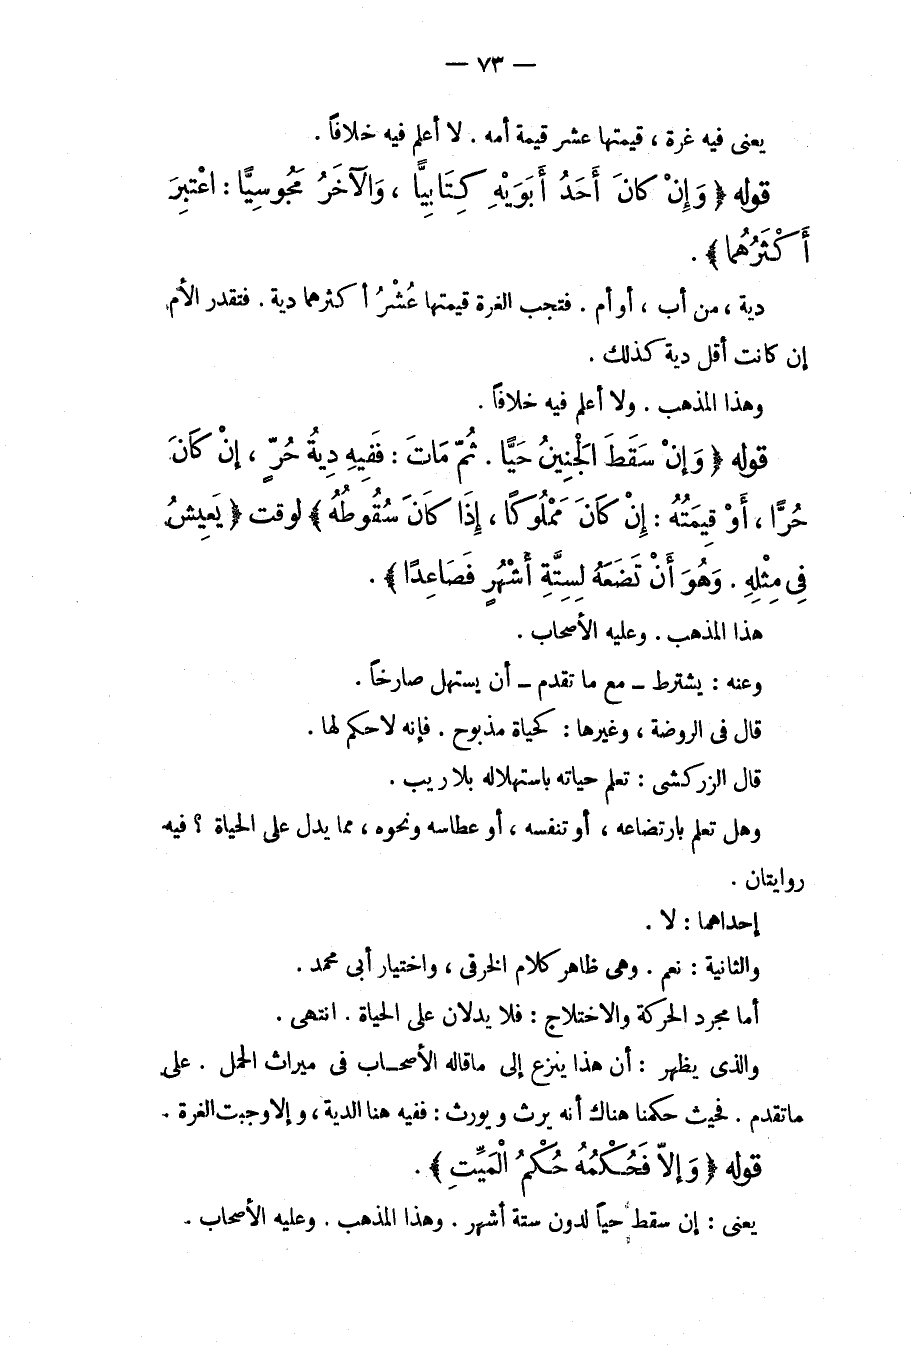 — ٧٣ —
يعنى فيه غرة ، قيمتها عشر قيمة أمه . لا أعلم فيه خلافاً .
قوله ﴿ وَإِنْ كانَ أَحَدُ أَبَوَيْهِ كِتَابِيًّا ، وَالآخَرُ مَجُوسِيًّا : اعْتُبِرَ
أَكْثَرُهُما ﴾ .
دية ، من أب ، أو أم . فتجب الغرة قيمتها عُشْرُ أكثرهما دية . فتقدر الأم,
إن كانت أقل دية كذلك .
وهذا المذهب . ولا أعلم فيه خلافاً .
قوله ﴿ وَإِنْ سَقَطَ الجَنِينُ حَيًّا . ثُمّ مَاتَ : فَفِيهِ دِيةُ حُرٍّ ، إنْ كَانَ
حُرًّا ، أَوْ قِيمَتُهُ : إِنْ كَانَ مَمْلُوكًا ، إِذَا كَانَ سُقُوطُهُ ﴾ لوقت ﴿ يَعِيشُ
فِى مِثْلِهِ . وَهُوَ أَنْ تَضَعَهُ لِسِتَّةِ أَشْهُرٍ فَصَاعِدًا ﴾ .
هذا المذهب . وعليه الأصحاب .
وعنه : يشترط ــ مع ما تقدم ــ أن يستهل صارخاً .
قال فى الروضة ، وغيرها : كحياة مذبوح . فإنه لاحكم لها .
قال الزركشى : تعلم حياته باستهلاله بلا ريب .
وهل تعلم بارتضاعه ، أو تنفسه ، أو عطاسه ونحوه ، مما يدل على الحياة ؟ فيه
روايتان .
إحداهما : لا .
والثانية : نعم . وهى ظاهر كلام الخرقى ، واختيار أبى محمد .
أما مجرد الحركة والاختلاج : فلا يدلان على الحياة . انتهى .
والذى يظهر : أن هذا ينزع إلى ماقاله الأصحـاب فى ميراث الحمل . على
ماتقدم . فحيث حكمنا هناك أنه يرث ويورث : ففيه هنا الدية ، وإلا وجبت الغرة .
قوله ﴿ وَإِلاّ فَحُكْمُهُ حُكْمُ الْمَيِّتِ ﴾ .
يعنى : إن سقط حياً لدون ستة أشهر . وهذا المذهب . وعليه الأصحاب .